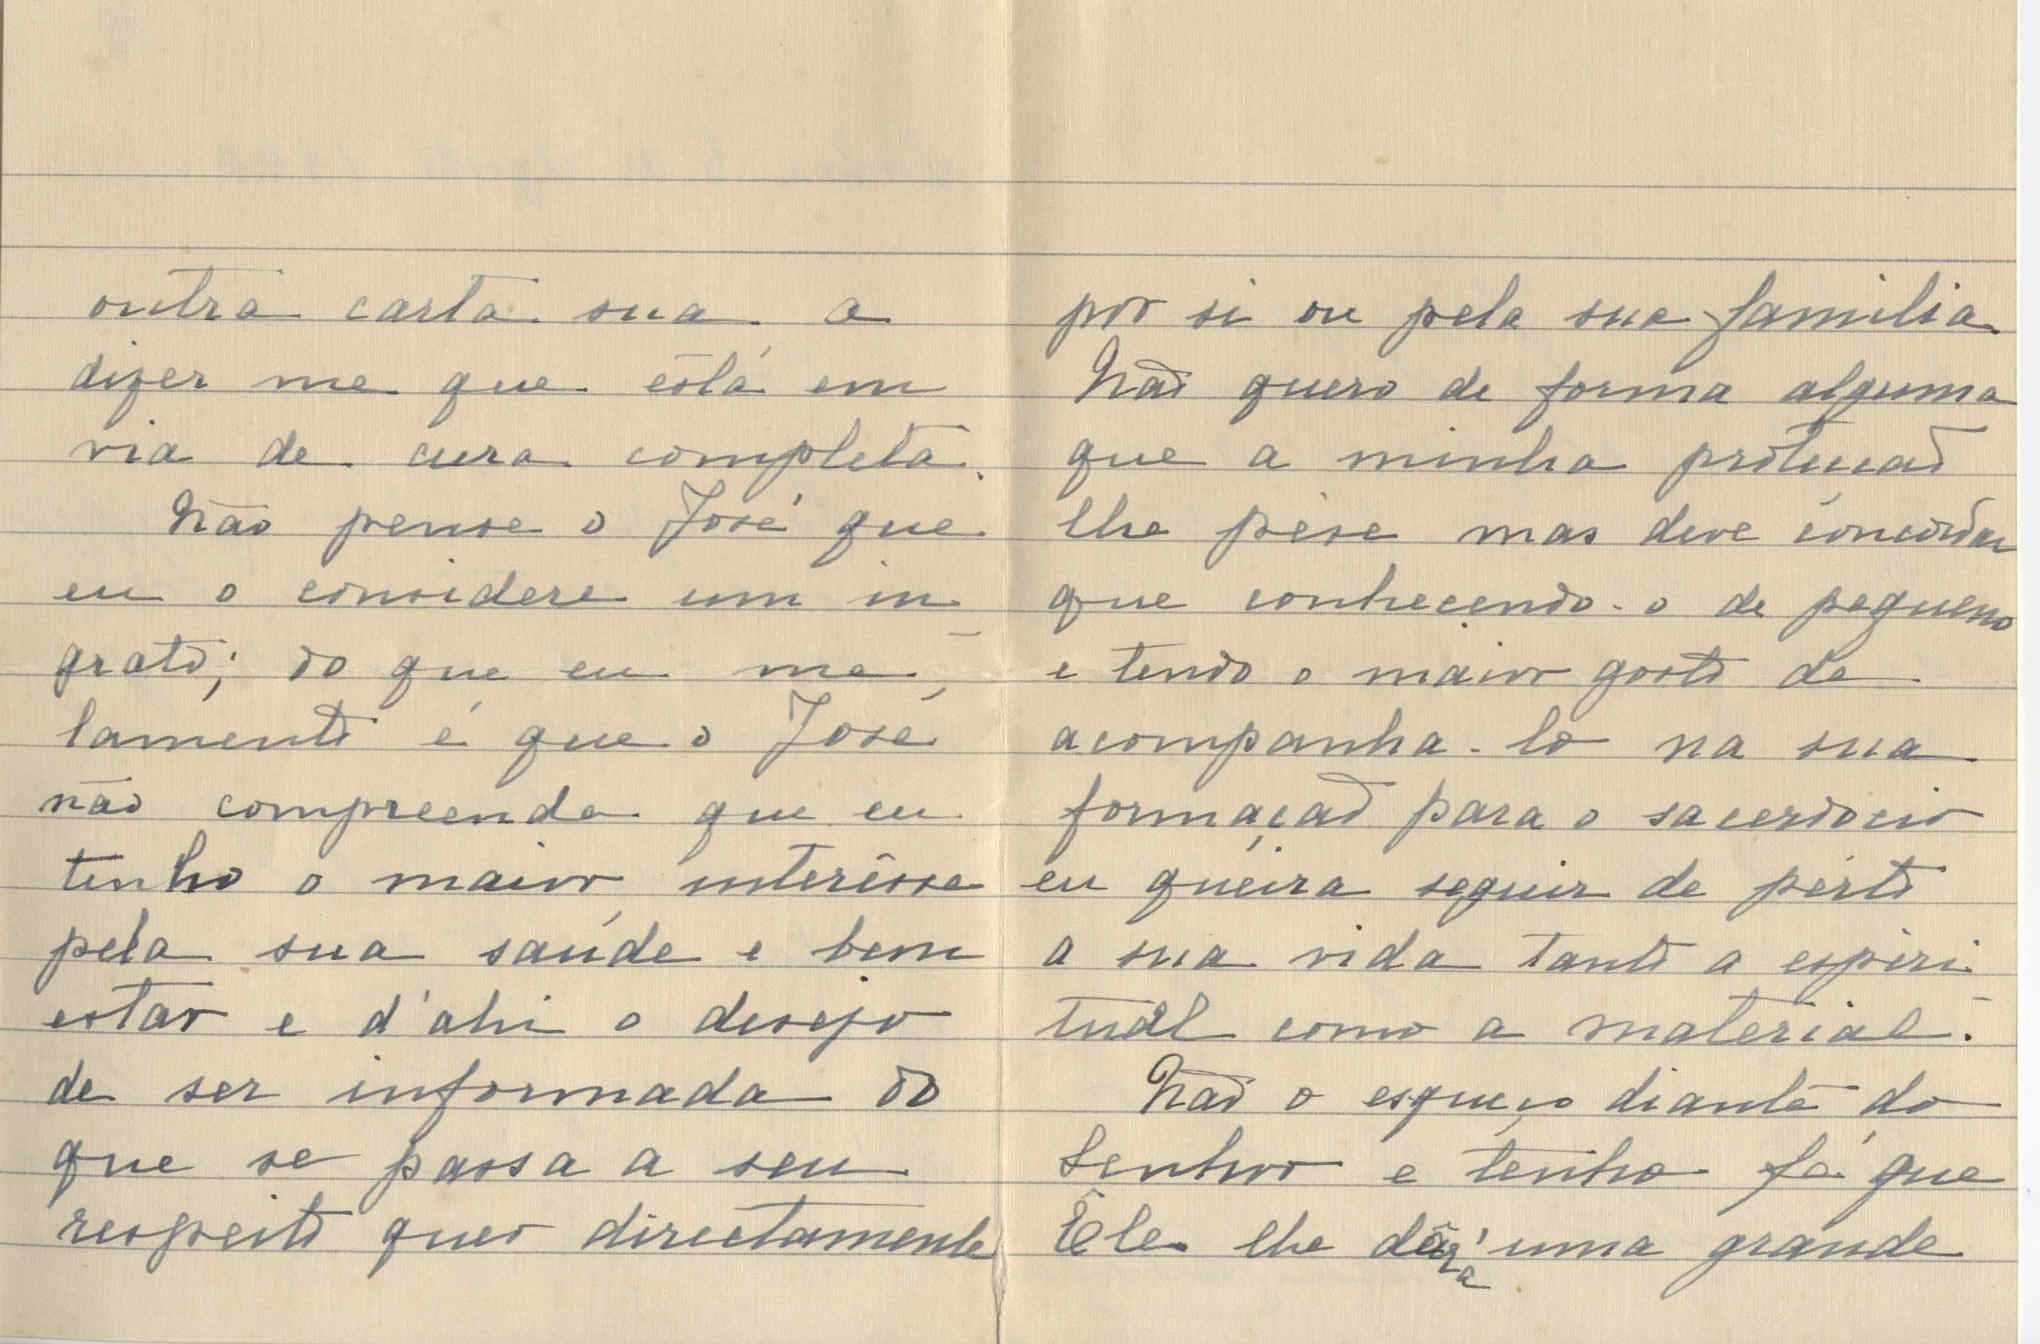 outra carta sua a
dizer me que está em
via de cura completa.
Não pense o José que
eu o considere um in
grato; do que eu me
lamento é que o José
não compreenda que eu
tenho o maior interêsse
pela sua saúde e bem
estar e d'ahi o desejo
de ser informada do
que se passa a seu
respeito quer directamente
por si ou pela sua familia
Não quero de forma alguma
que a minha protecção
lhe pése mas deve concordar
que conhecendo-o de pequeno
e tendo o maior gosto de
acompanha-lo na sua
formação para o sacerdocio
eu queira seguir de perto
a sua vida tanto a espiri
tual como a material.
Não o esqueço diante do
Senhor e tenho fé que
Êle lhe dará uma grande